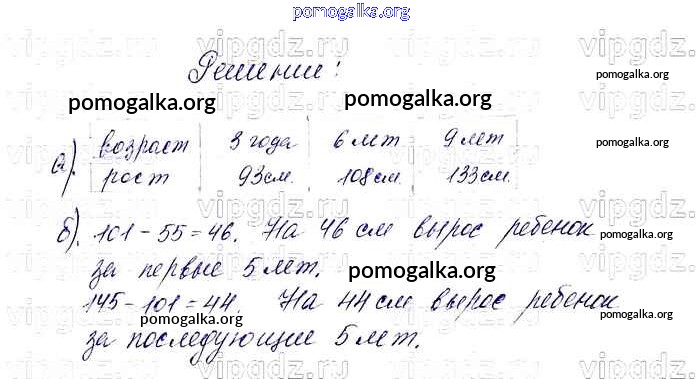 pomogalka.org
vipgdz. vipgdz. vipgdz.
Решение:
pomogalka.org
pomogalka.org pomogalka.org
а). возраст 3 года 6 лет 9 лет
рост 93см. 108см. 133см.
pomogalka.org
б). 101-55=46. На 46 см вырос ребенок
за первые 5 лет.
pomogalka.org
pomogalka.org
145-101=44. На 44 см вырос ребенок
pomogalka.org pomogalka.org
за последующие 5 лет.
vipgdz. vipgdz. vipgdz.